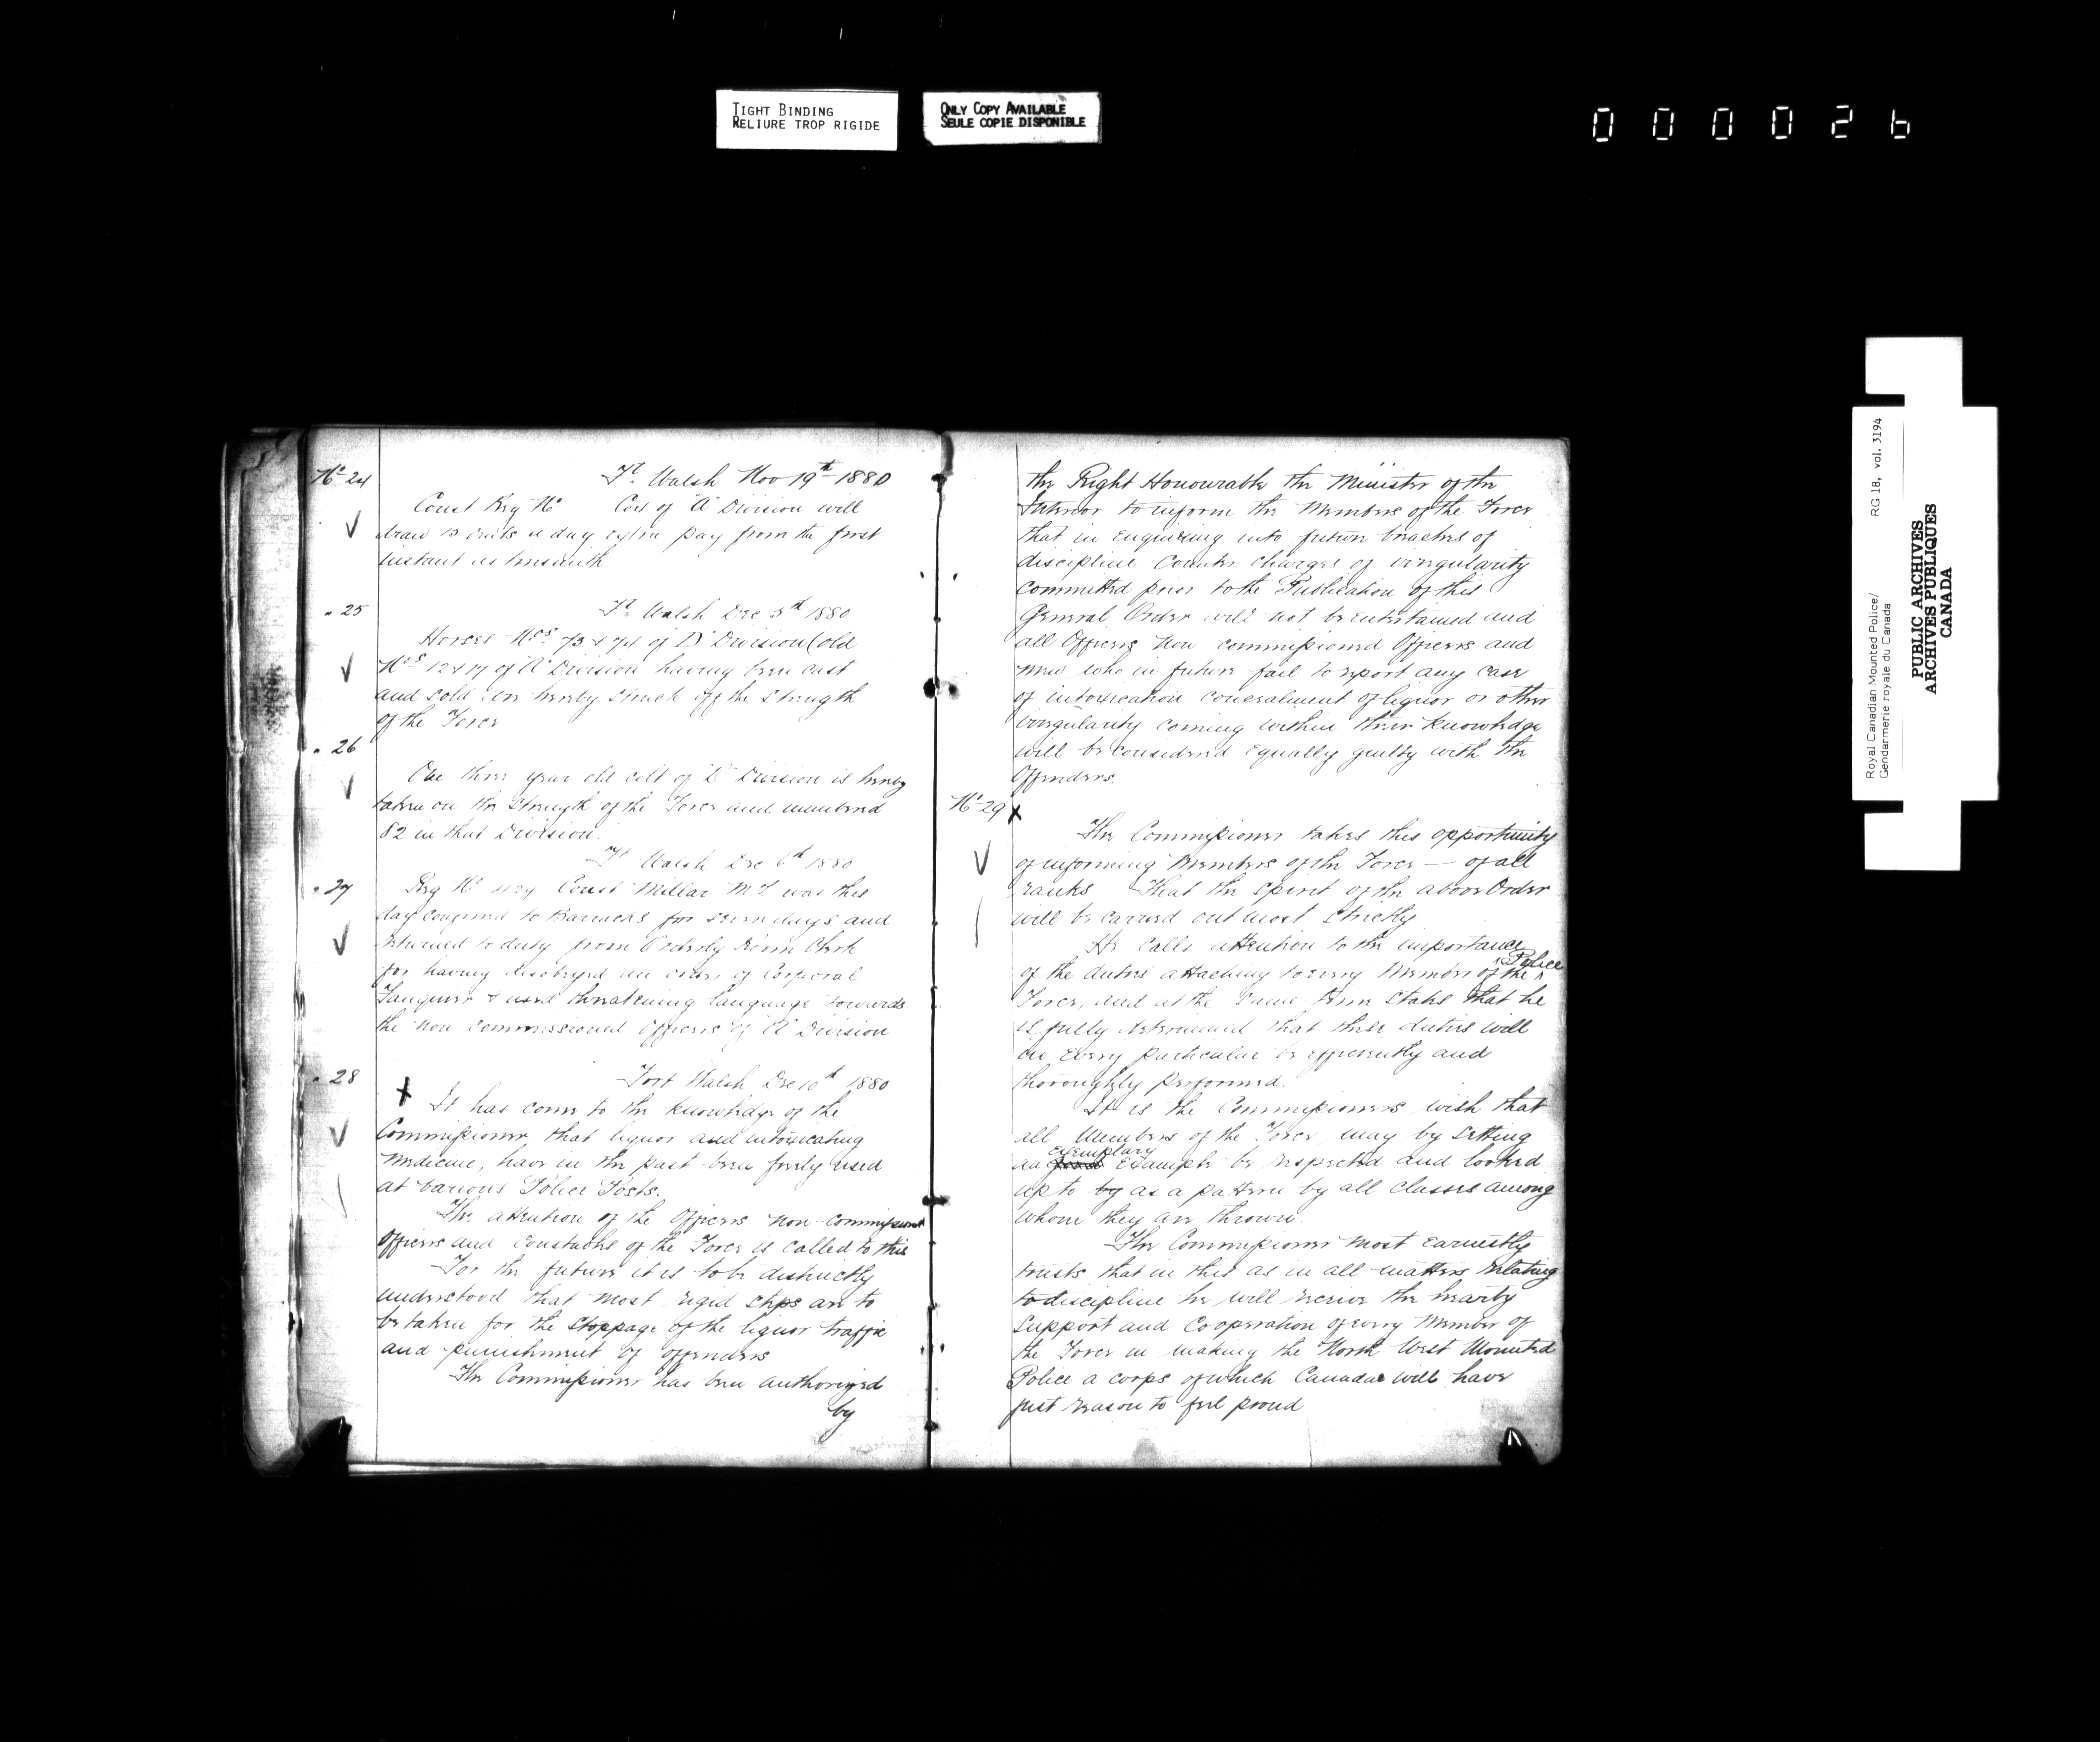 TIGHT BINDING
RELIURE TROP RIGIDE
ONLY COPY AVAILABLE
SEULE COPIE DISPONIBLE
000026
No 24
Ft. Walsh Nov 19th 1880
Const Reg No Cox of "A" Division will
draw 15 cents a day extra pay from the first
instant as tinsmith
" 25
Ft. Walsh Dec 3rd 1880
Horses Nos 73 & 74 of "D" Division (old
Nos 12 & 17 of "A" Division having been cast
and sold are hereby struck off the strength
of the Force
" 26
One three year old colt of "D" Division is hereby
taken on the strength of the Force and numbered
82 in that Division.
Ft Walsh Dec 6th 1880
" 27
Reg No Const Millar M.J. was this
day confined to Barracks for seven days and
returned to duty from Orderly Room Clerk
for having disobeyed an order of Corporal
& used threatening language towards
the Non commissioned Officers of "A" Division
" 28
Fort Walsh Dec 10th 1880
It has come to the knowledge of the
Commissioner, that liquor and intoxicating
medicine, have in the past been freely used
at various Police Posts.
The attention of the Officers non-commissioned
Officers and Constables of the Force is called to this
For the future it is to be distinctly
understood that most rigid steps are to
be taken for the stoppage of the liquor traffic
and punishment of offenders
The Commissioner has been authorized
by
the Right Honourable the Minister of the
Interior to inform the Members of the Force
that in enquiring into future breaches of
discipline Counter charges of irregularity
committed prior to the Publication of this
General Order will not be entertained and
all Officers Non commissioned Officers and
men who in future fail to report any case
of intoxication concealment of liquor or other
irregularity coming within their knowledge
will be considered equally guilty with the
Offenders.
No 29
The Commissioner takes this opportunity
of informing Members of the Force — of all
ranks That the spirit of the above Order
will be carried out most strictly
He calls attention to the importance
of the duties attaching to every Member of the Police
Force, and at the same time states that he
is fully determined that these duties will
in every particular be efficiently and
thoroughly performed.
It is the Commissioners wish that
all Members of the Force may by setting
an exemplary example be respected and looked
up to by as a pattern by all classes among
whom they are thrown.
The Commissioner most earnestly
trusts that in this as in all matters relating
to discipline he will receive the hearty
support and Cooperation of every Member of
the Force in making the North West Mounted
Police a corps of which Canada will have
just reason to feel proud
Royal Canadian Mounted Police/
Gendarmerie royale du Canada
RG 18, vol. 3194
PUBLIC ARCHIVES
ARCHIVES PUBLIQUES
CANADA